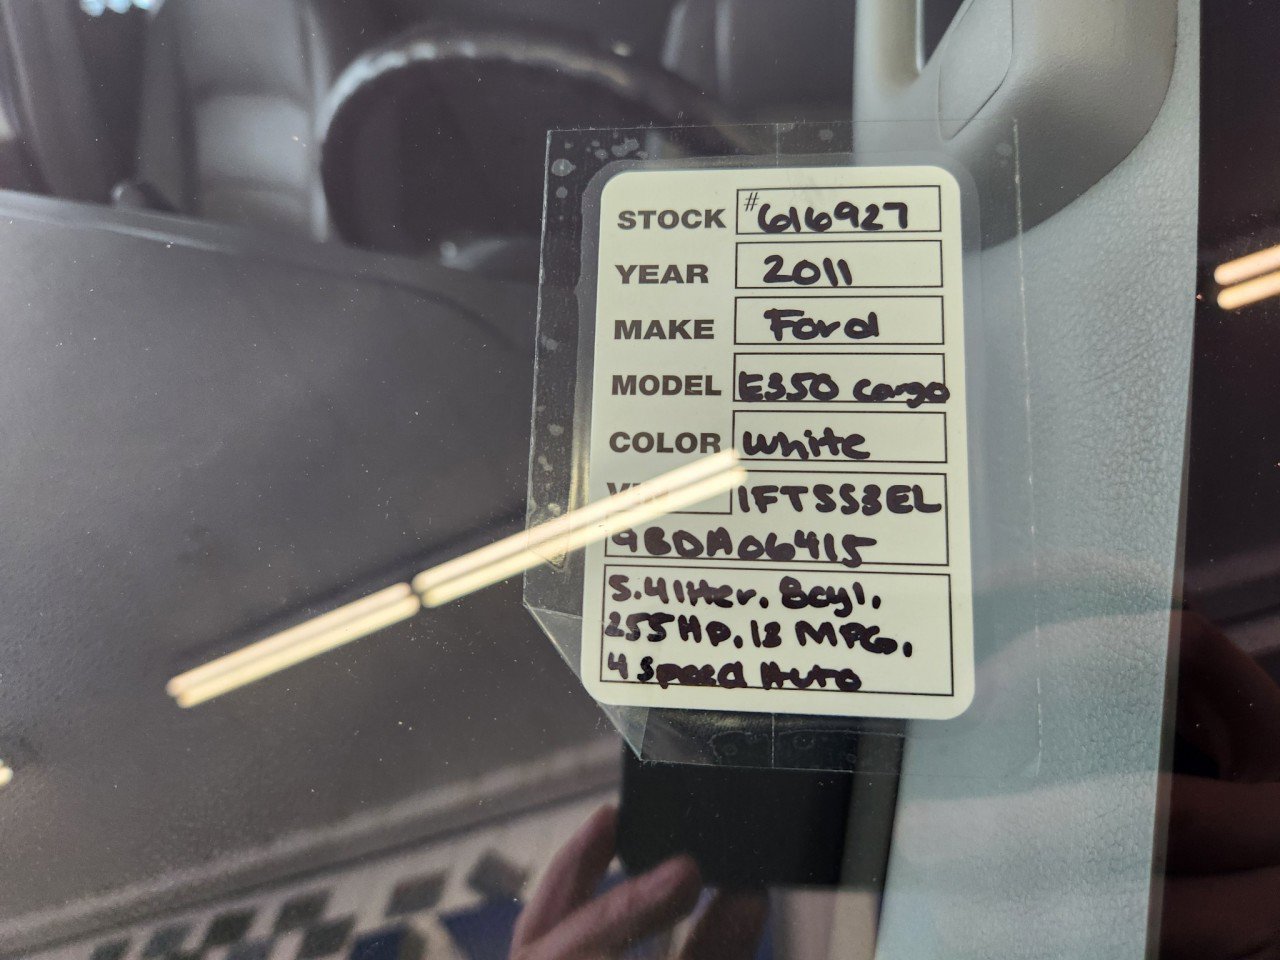 STOCK #616927
YEAR 2011
MAKE Ford
MODEL E350 cargo
COLOR white
VIN 1FTSS3EL
9BDA06415
5.4liter. 8cyl.
255HP. 13 MPG.
4 Speed Auto